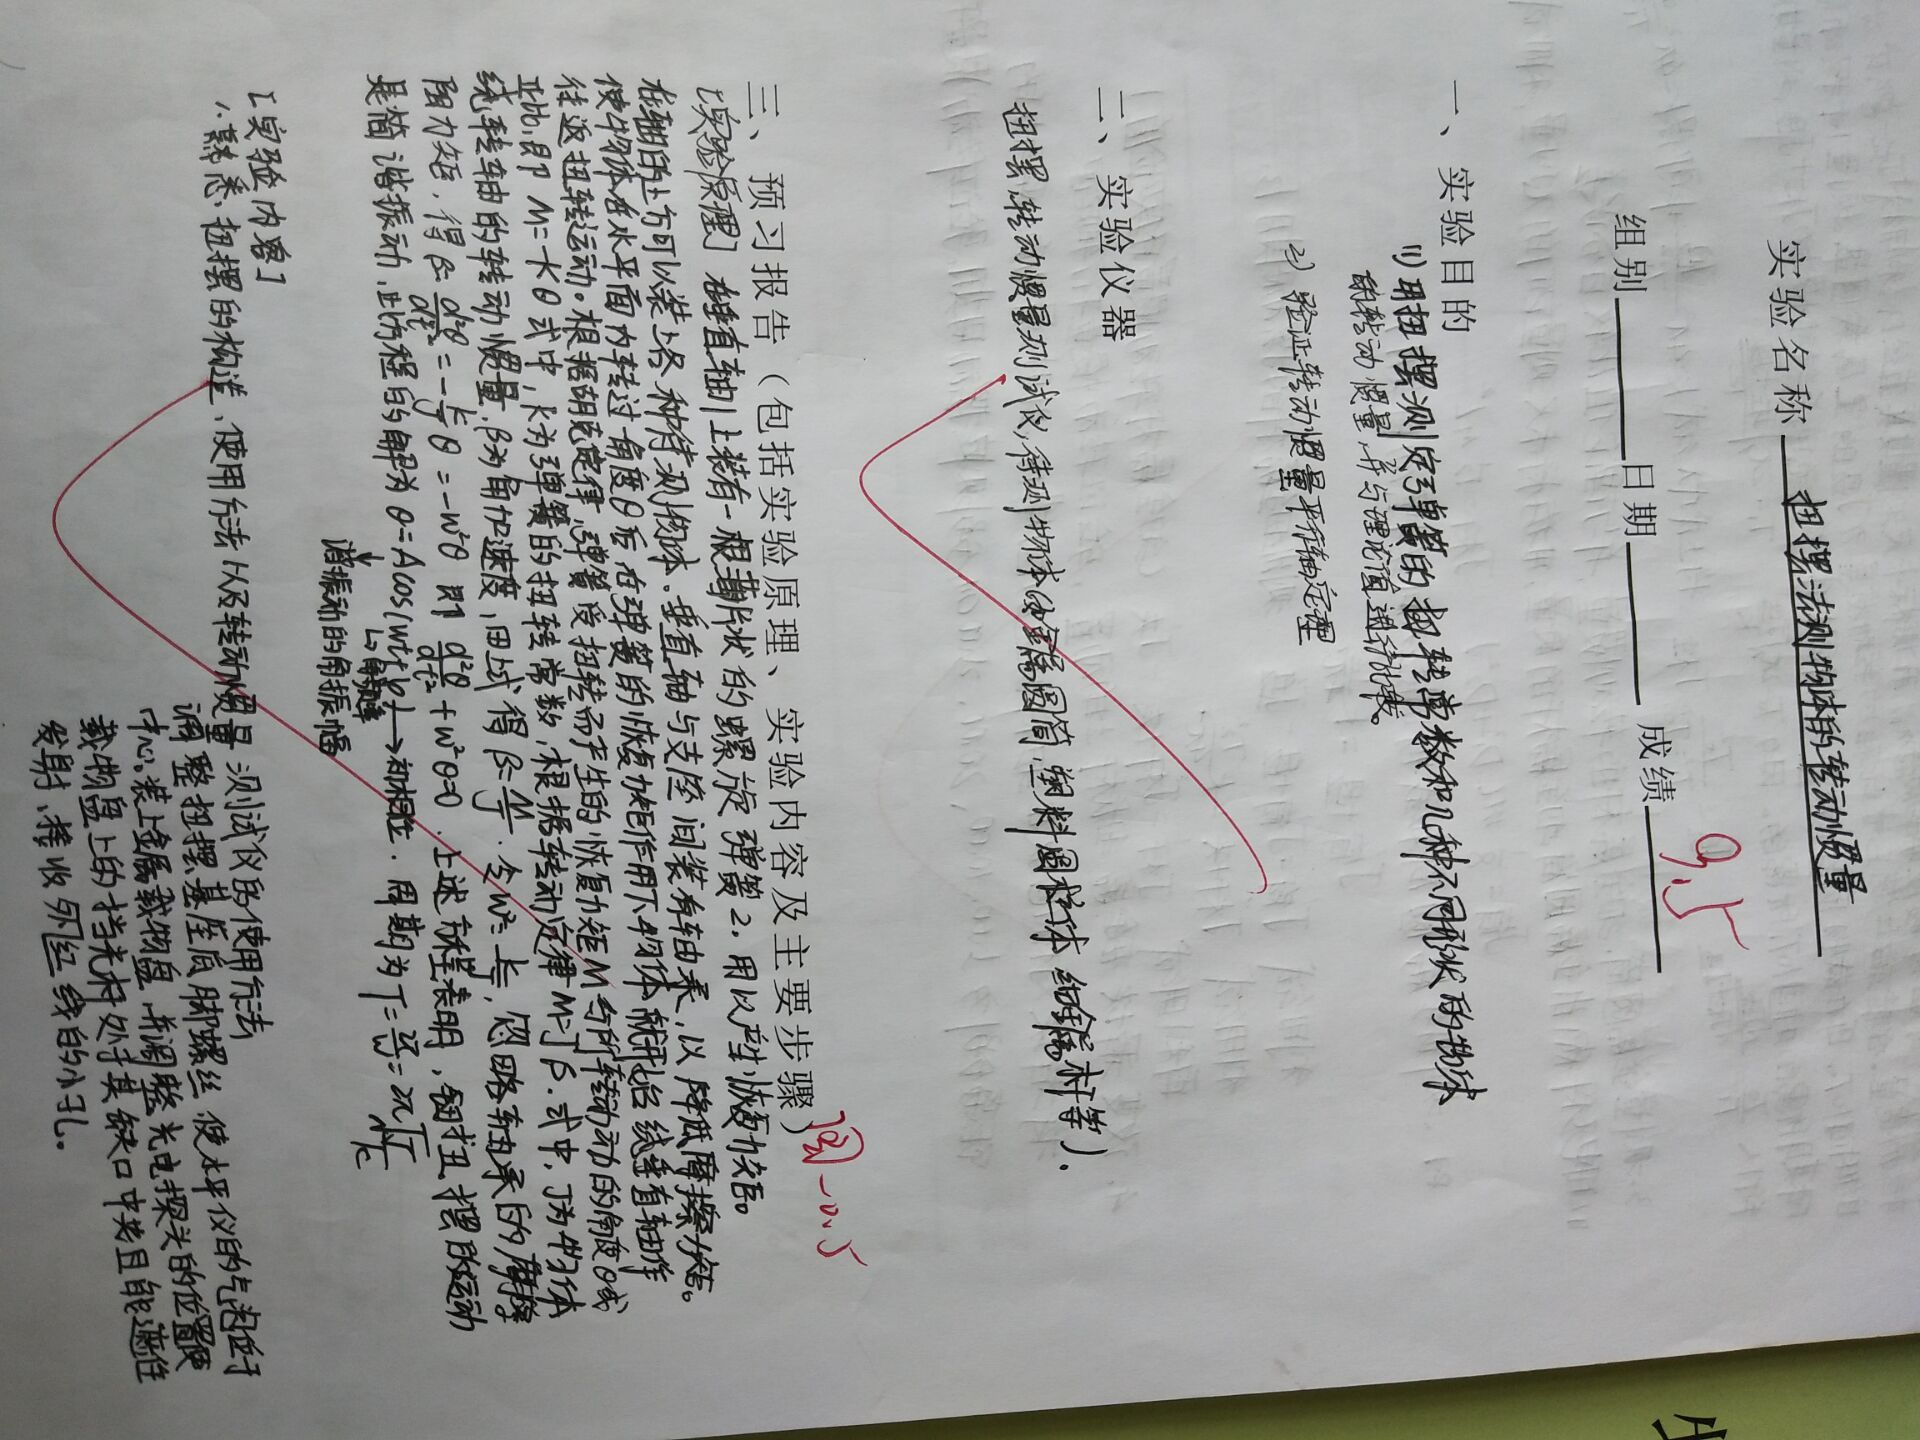 实验名称 扭摆法测物体的转动惯量
组别 日期 成绩 9.5
一、实验目的
1) 用扭摆测定弹簧的扭转常数和几种不同形状的物体
的转动惯量,并与理论值进行比较、
2) 验证转动惯量平行轴定理
二、实验仪器
扭摆,转动惯量测试仪,待测物体(金属圆筒,塑料圆柱体 细金属杆等).
三、预习报告(包括实验原理、实验内容及主要步骤)
图 -0.5
[实验原理] 在垂直轴1上装有一根薄片状的螺旋弹簧2.用以产生恢复力矩。
在轴的上方可以装上各种待测物体.垂直轴与支座间装有轴承,以降低摩擦力矩。
使物体在水平面内转过角度θ后在弹簧的恢复力矩作用下,物体就开始绕垂直轴作
往返扭转运动.根据胡克定律,弹簧受扭转而产生的恢复力矩M与所转动的角度θ成
正比,即 M=-Kθ 式中,K为弹簧的扭转常数,根据转动定律 M=Jβ.式中,J为物体
绕转轴的转动惯量,β为角加速度,由上式得β=M/J.令w²=k/J,忽略轴承的摩擦
阻力矩,得β=d²θ/dt²=-k/J θ=-w²θ 即 d²θ/dt²+w²θ=0.上述方程表明,扭摆的运动
是简谐振动,此方程的解为θ=Acos(wt+φ)→初相位.周期为T=2π/w=2π√J/k
↳角频率
谐振动的角振幅
[实验内容]
1、熟悉扭摆的构造,使用方法以及转动惯量测试仪的使用方法
调整扭摆基座底脚螺丝 使水平仪的气泡位于
中心。装上金属载物盘,并调整光电探头的位置使
载物盘上的挡光杆处于其缺口中央且能遮住
发射、接收外红线的小孔。